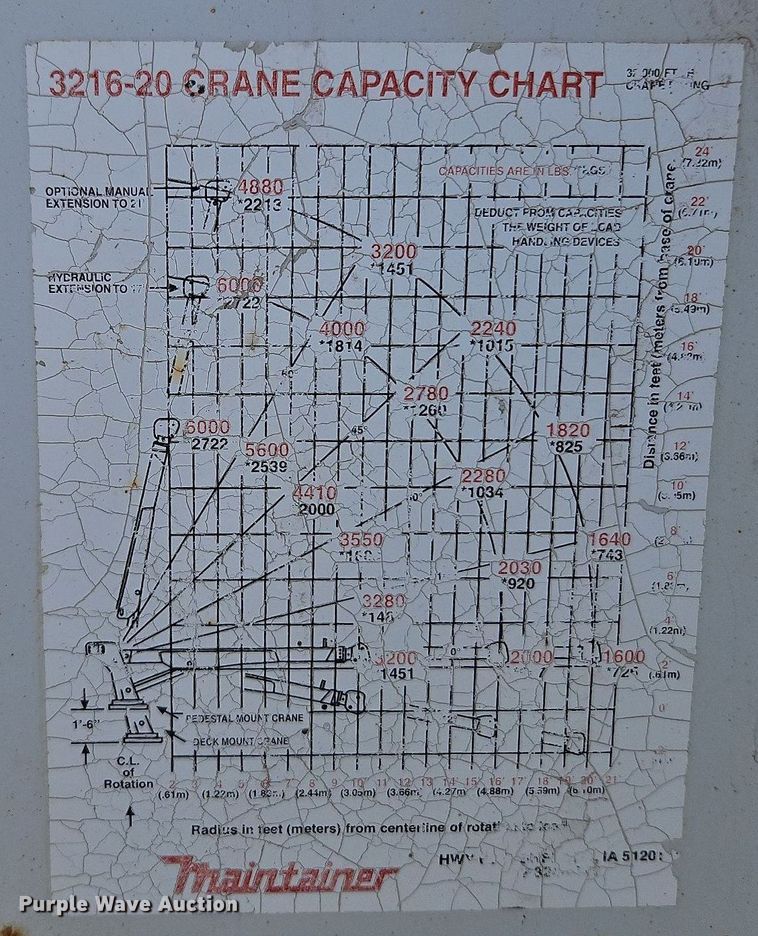 3216-20 CRANE CAPACITY CHART
CAPACITIES ARE IN LBS.
OPTIONAL MANUAL
EXTENSION TO 21'
4880
*2213
DEDUCT FROM CAPACITIES
THE WEIGHT OF LOAD
HANDLING DEVICES
3200
*1451
HYDRAULIC
EXTENSION TO 17'
6000
*2722
4000
*1814
2240
*1015
2780
*1260
6000
*2722
5600
*2539
45°
1820
*825
4410
*2000
2280
*1034
3550
1640
*743
2030
*920
3280
0°
3200
*1451
2000
1600
1'-6"
PEDESTAL MOUNT CRANE
DECK MOUNT CRANE
C.L.
of
Rotation
24'
22'
20'
18'
16'
14'
12'
(3.66m)
10'
8'
6'
4'
(1.22m)
2'
(.61m)
0'
Distance in feet (meters) from base of crane
2 3 4 5 6 7 8 9 10 11 12 13 14 15 16 17 18 19 20 21
(.61m) (1.22m) (1.83m) (2.44m) (3.05m) (3.66m) (4.27m) (4.88m) (5.59m) (6.10m)
Radius in feet (meters) from centerline of rotation to load
Maintainer
HWY IA 51201
Purple Wave Auction